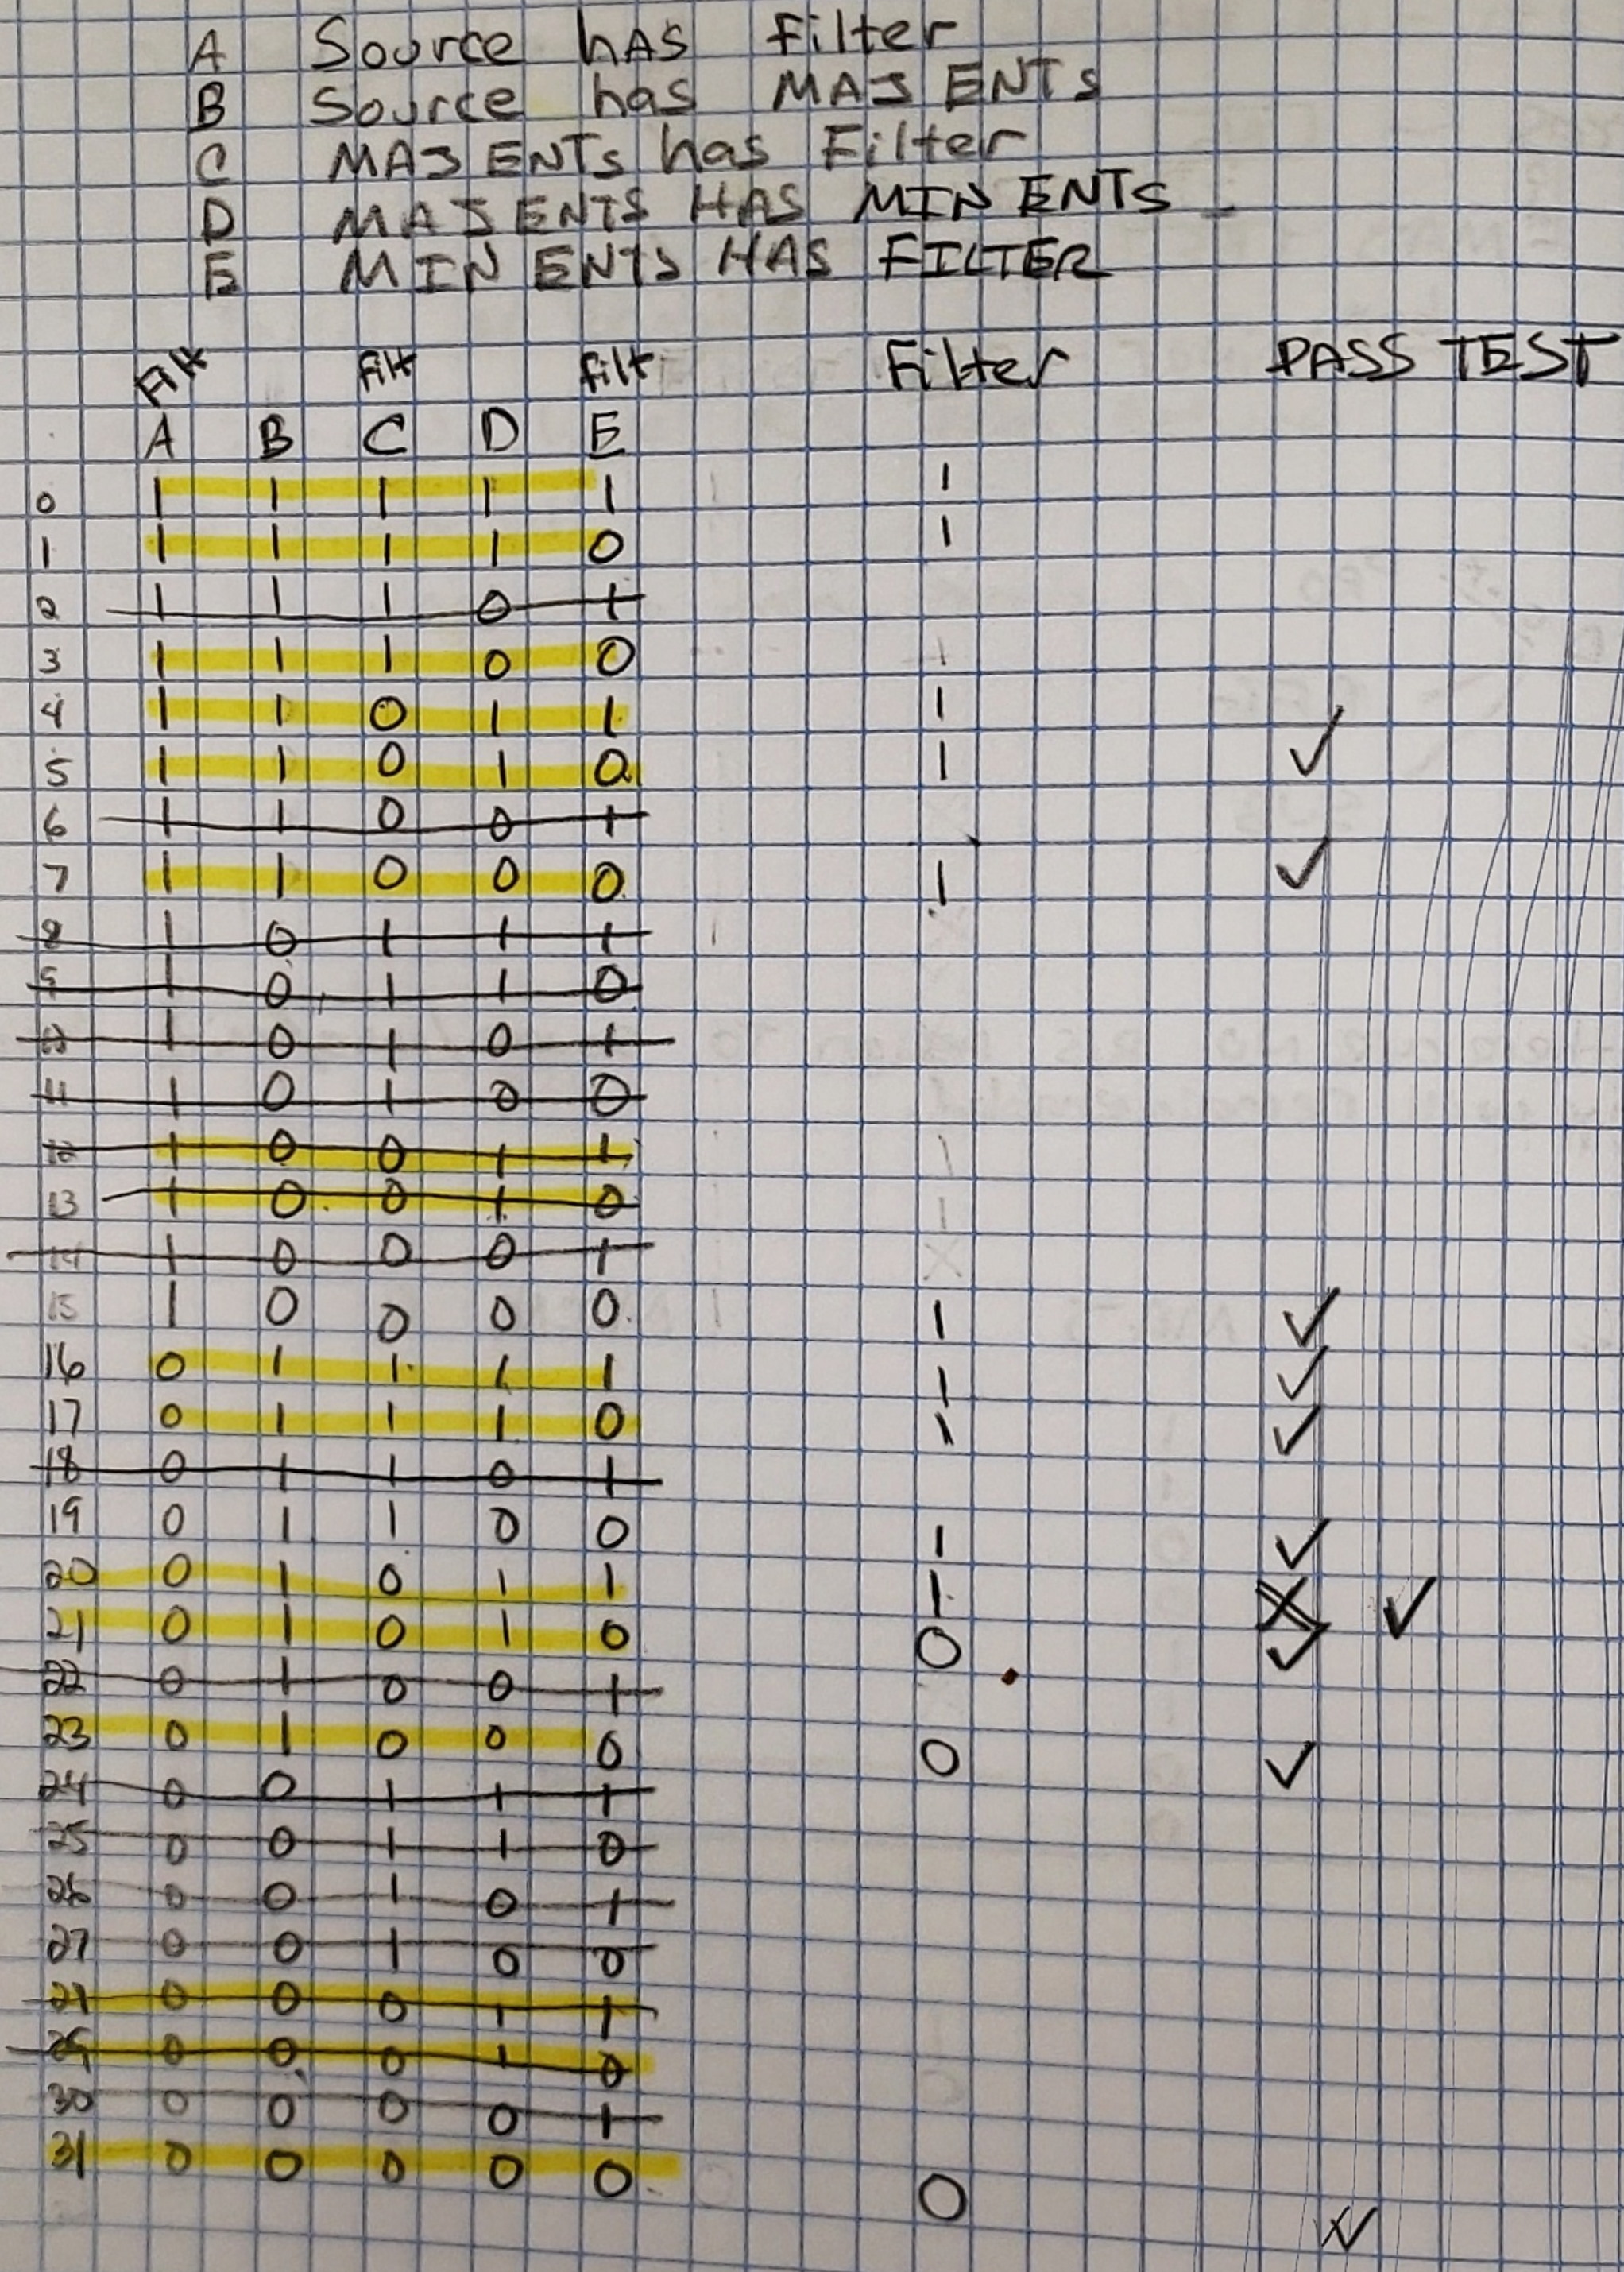 A Source hAS Filter
B Source has MAJ ENTs
C MAJ ENTs has Filter
D MAJ ENTS HAS MIN ENTS
E MIN ENTS HAS FILTER
Filt Filt Filt Filter PASS TEST
A B C D E
0 1 1 1 1 1 1
1 1 1 1 1 0 1
2 1 1 1 0 1
3 1 1 1 0 0 1
4 1 1 0 1 1 1
5 1 1 0 1 0 1 ✓
6 1 1 0 0 1
7 1 1 0 0 0 1 ✓
8 1 0 1 1 1
9 1 0 1 1 0
10 1 0 1 0 1
11 1 0 1 0 0
12 1 0 0 1 1
13 1 0 0 1 0
14 1 0 0 0 1
15 1 0 0 0 0 1 ✓
16 0 1 1 1 1 1 ✓
17 0 1 1 1 0 1 ✓
18 0 1 1 0 1
19 0 1 1 0 0 1 ✓
20 0 1 0 1 1 1 X ✓
21 0 1 0 1 0 0 ✓
22 0 1 0 0 1
23 0 1 0 0 0 0 ✓
24 0 0 1 1 1
25 0 0 1 1 0
26 0 0 1 0 1
27 0 0 1 0 0
28 0 0 0 1 1
29 0 0 0 1 0
30 0 0 0 0 1
31 0 0 0 0 0 0
✓